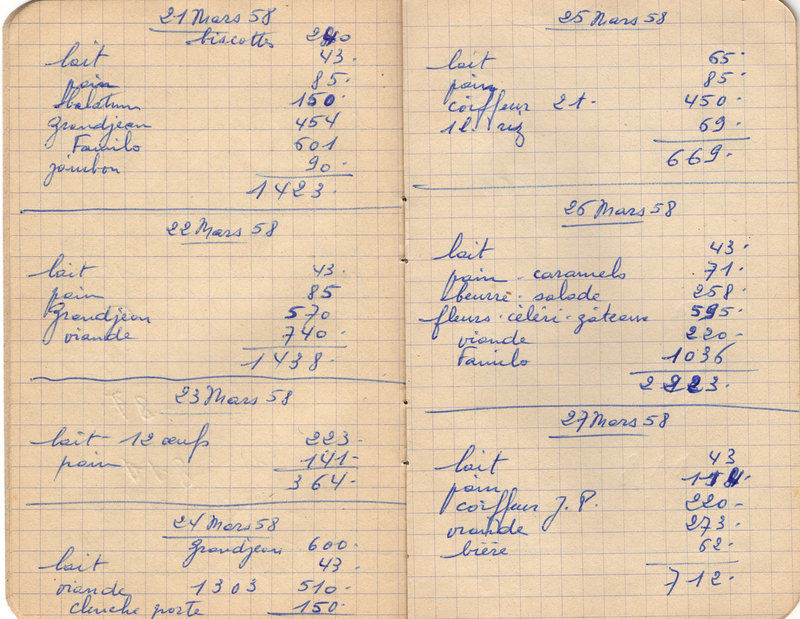 21 Mars 58
biscottes
lait 43.
pain 85.
Balatum 150.
Grandjean 454
Familo 601
jambon 90.
1423.
22 Mars 58
lait 43.
pain 85
Grandjean 570
viande 740.
1438.
23 Mars 58
lait - 12 œufs 223.
pain 141-
364.
24 Mars 58
Grandjean 600.
lait 43.
viande 1303 510.
clenche porte 150.
25 Mars 58
lait 65.
pain 85.
coiffeur 2 t. 450.
1 l. riz 69.
669.
26 Mars 58
lait 43.
pain - caramels 71.
beurre - salade 258.
fleurs - céleri - gâteaux 595.
viande 220-
Familo 1036
2223.
27 Mars 58
lait 43
pain 114.
coiffeur J. P. 220-
viande 273.
bière 62.
712.